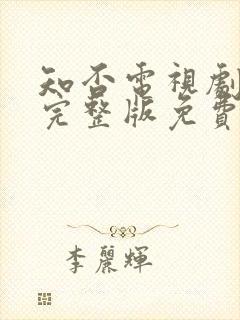 知否電視劇
完整版免費
李麗輝